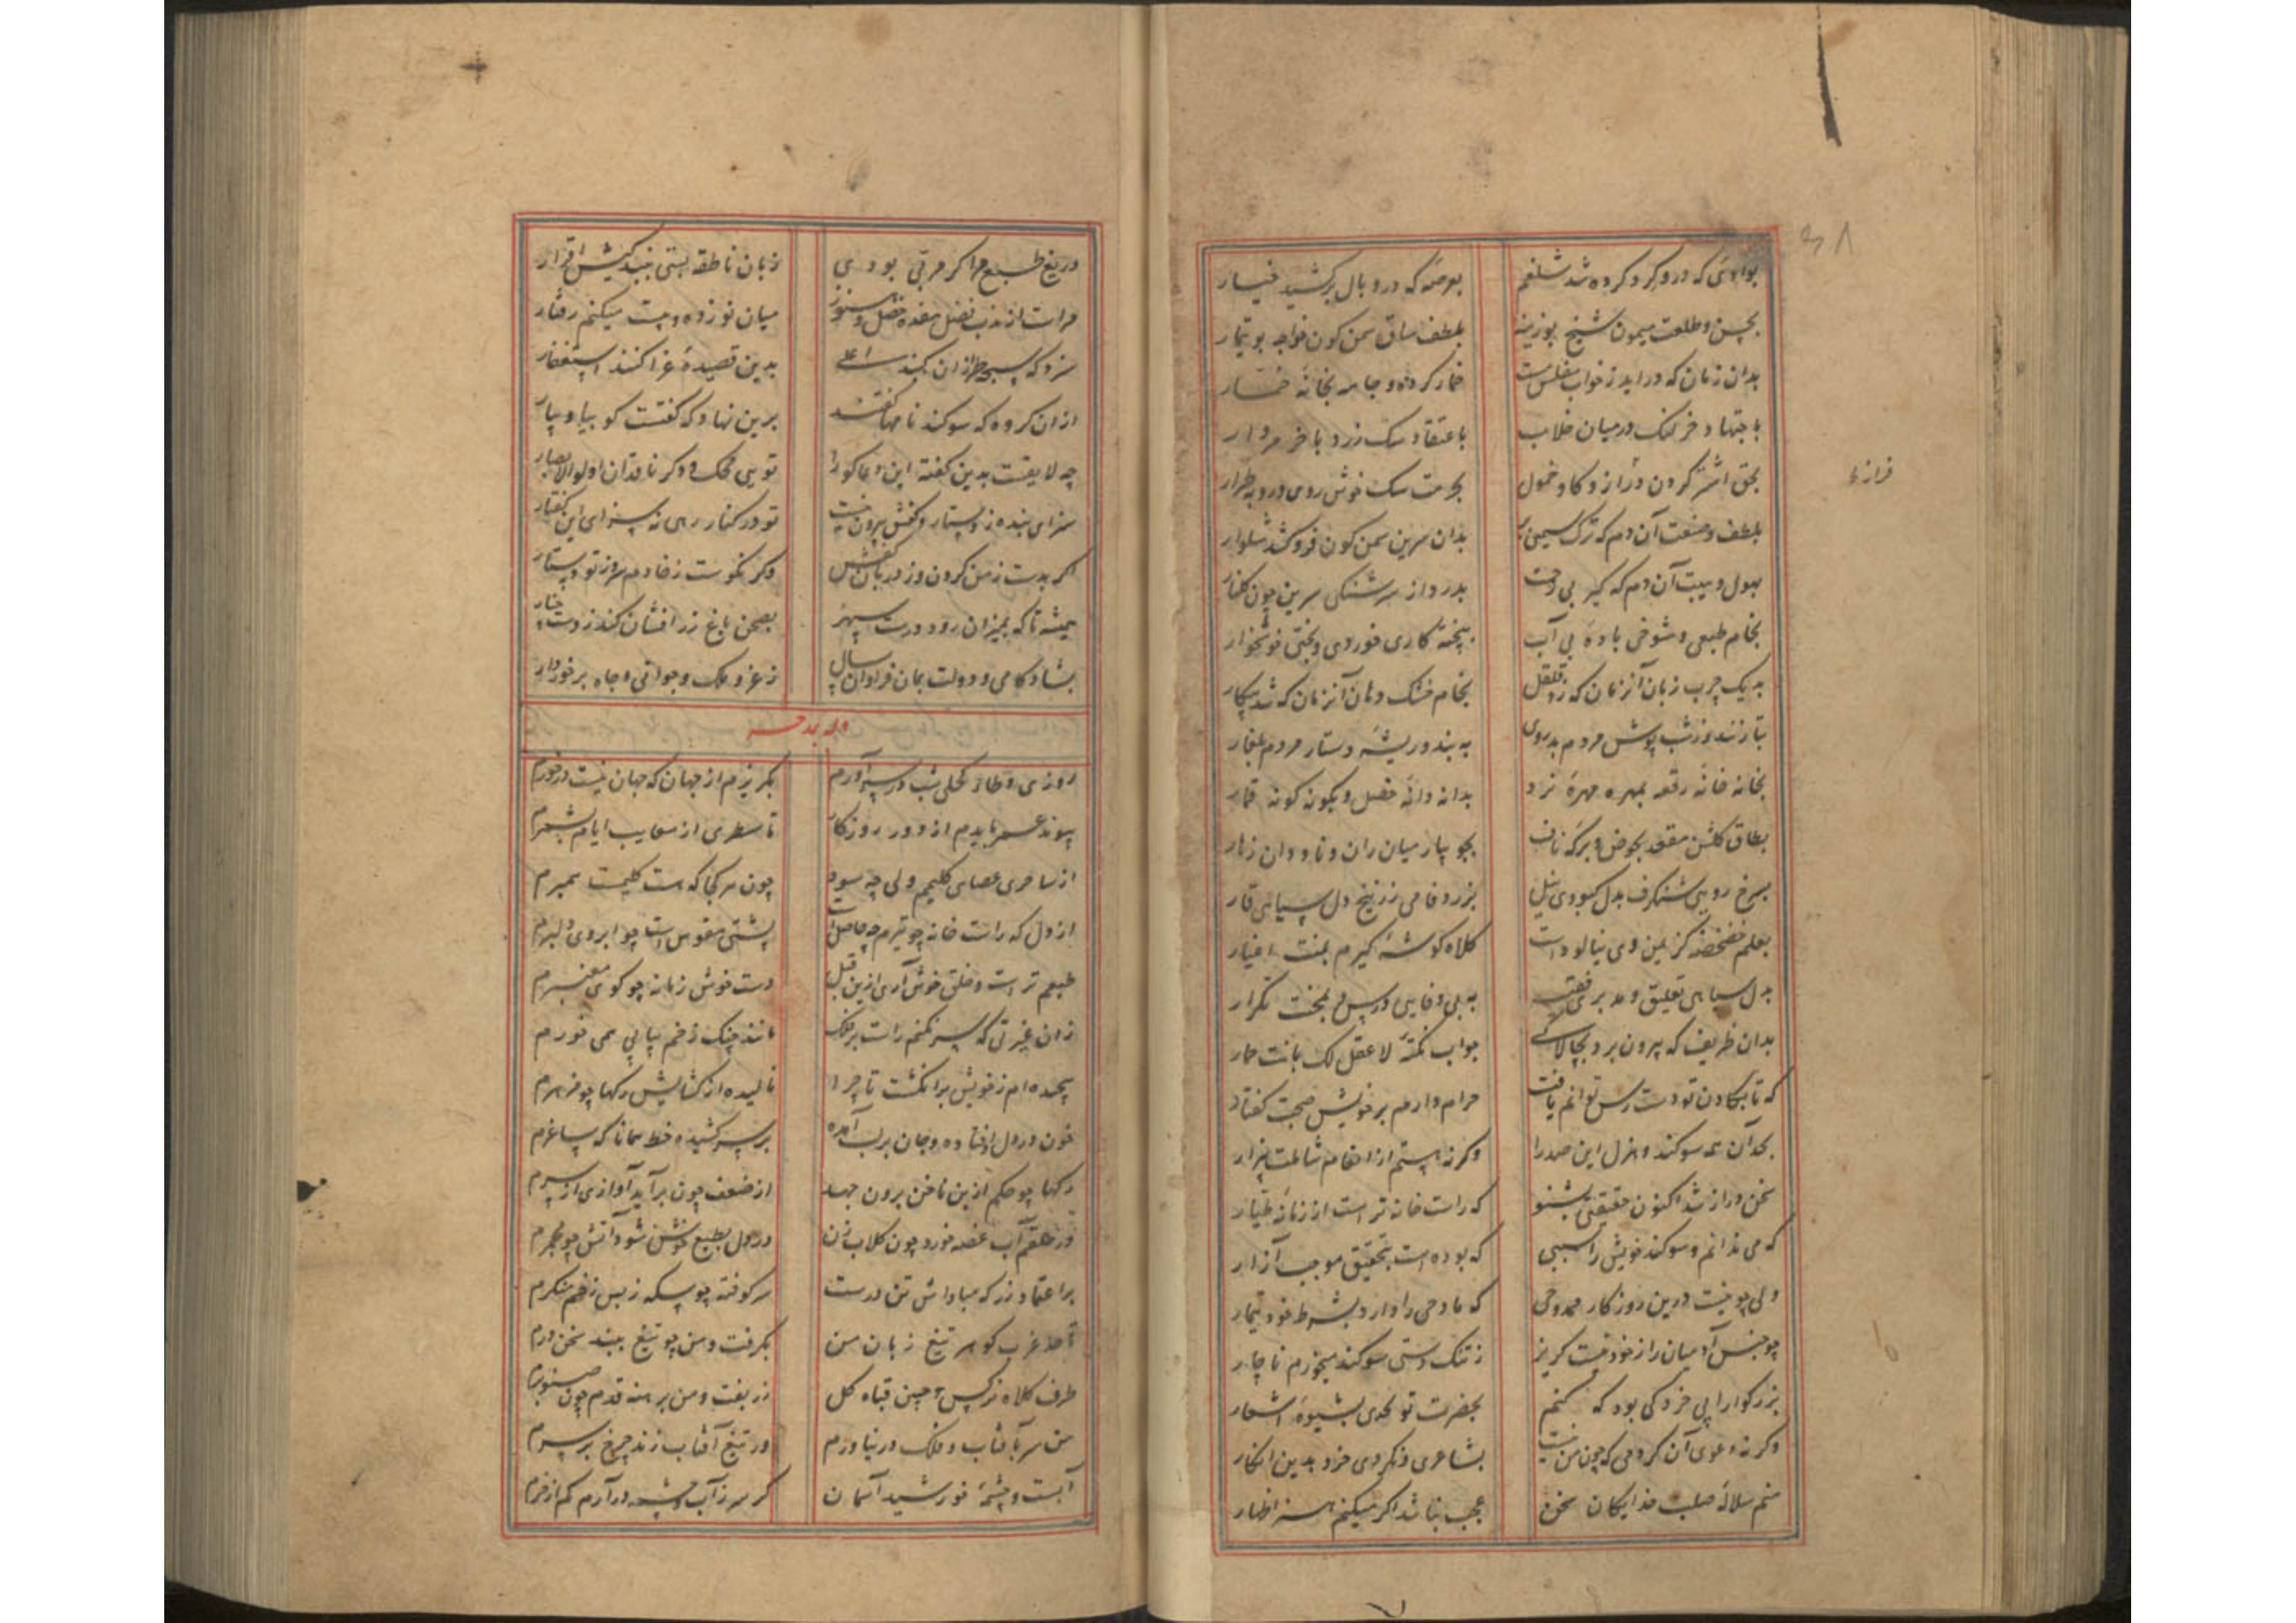 بوادئی که درو کرد کرده شد شلغم بعرصه که درو بال برکشید خیار
بحسن و طلعت میمون شیخ بوزینه بلطف ساق سمن کون خواجه بوتیمار
بدان زمان که دراید ز خواب مفلس مست خمار کرده و جامه بخانه خمار
باجتهاد خر لنک درمیان خلاب باعتقاد سک زرد با خر مردار
بحق اشتر کردن دراز و کاو خمول بحرمت سک خوش روی و روبه طرار
بلطف و صنعت آن دم که ترک سیمین بر بدان سرین سمن کون فروکشد شلوار
بهول و هیبت آن دم که کیر بی رحمت بدرد از سر شنکی سرین چون کلنار
بخام طبعی و شوخی باده بی آب بپخته کاری خوردی و بختی خونخوار
به یک چرب زبان آنزمان که زد قلقل بخام خشک دهان آنزمان که شد بیکار
بتا زننده و زشت پوش مردم بدروی به بند و ریشه دستار مردم بلغار
بخانه خانه رقعه بمهره مهره نرد بدانه دانه خصل و بکونه کونه قمار
بطاق کلشن مقعد بحوض و برکه ناف بجو یبار میان ران و ناودان زهار
بسرخ رویی شنکرف بدل کبودی نیل بزرد فامی زرنیخ و دل سیاهی قار
بعلم مضمضه کز بین وی نیالودست کلاه کوشه کیرم بمنت اغیار
بدل سیاهی تعلیق و مدبری فقیه به بی وفایی درس و بمحنت تکرار
بدان ظریف که بیرون برد بچالاکی جواب نکته لا عقل لک بانت حمار
که تا بکادن تو دست رس توانم یافت حرام دارم بر خویش صحبت کفتار
بحد آن همه سوکند و هزل این صدرا وکرنه استم ازانعام شاملت بیزار
سخن دراز شد اکنون حقیقتی بشنو که راست خانه تر است از زمانه طیار
که می ندانم و سوکند خویش را سببی که بوده است بتحقیق موجب آزار
ولی چو نیست درین روزکار ممدوحی که مادحی را دارد بشرط خود تیمار
چو جنس آدمیان را ز خود نیست کریز ز تنک دستی سوکند میخورم ناچار
بزرکوارا پی خردکی بود که کنم بحضرت تو تحدی بشیوه اشعار
وکرنه دعوی آن کردمی که چون من نیست بشاعری و نکردی خرد بدین انکار
منم سلاله صلب خدایکان سخن عجب نباشد اکر میکنم هنر اظهار
۳۸
فراز ما
دریغ طبع مرا کر مربی بودی زبان ناطقه بستی ببندکیش اقرار
مراست از مذب نضل مفده خصل و هنوز میان نو زده و بیست میکنم رفتار
سزد که سبحه طرازان کنبد اعلی بدین قصیده غرا کنند استغفار
ازان کروه که سوکند نامها کفتند برین نهاد که کفتست کو بیا و بیار
چه لایقست بدین کفته این دعا کو را تویی محک و دکر ناقدان اولوالابصار
سزای بنده ز دستار و کفش بیرون نیست تو در کنار رهی نه سزای این کفتار
اکر بدست ز من کردن و ز دربان کفش وکر نکوست ز خادم سر و ز تو دستار
همیشه تا که بمیزان رود درست سپهر بصحن باغ زر افشان کند ز دست چنار
بشادکامی و دولت بمان فراوان سال ز عز و ملک و جوانی و جاه برخوردار
وله یمدحه
روزی وطاء کحلی شب در سر آورم بکریزم از جهان که جهان نیست درخورم
پیوند عمر بایدم از دور روزکار تا سطری از معایب ایام بشمرم
از ساحری عصای کلیمم ولی چه سود چون هر کجا که هست کلیمست بر سرم
از دل که راست خانه چو تیرم چه حاصل است پشتی مقوس است چو ابروی دلبرم
طبعم تر است و خلق خوش آری ازین قبل دست خوش زمانه چو کوی معنبرم
زان غیرتی که سر نکنم راست بر فلک مانند چنک زخم پیاپی همی خورم
پیچیده ام ز خویش بر انکشت تا چرا نالیده از کشاکش رکها چو مزهرم
خون در دل اوفتاده و جان بر لب آمده بر سر کشیده خط همانا که ساغرم
رکها چو حکم ازین ناخن برون جهد از ضعف چون برآید آوازی از سرم
در حلقم آب غصه خورد چون کلاب زن در دل بطبع خوش شود آتش چو مجمرم
بر اعتماد زر که مبادا ش تن درست سر کوفته چو سکه ز بس زخم منکرم
تا حد غرب کوهر تیغ زبان من بکرفت و من چو تیغ ببند سخن درم
طرف کلاه نرکس و چین قباه کل زربفت و من برهنه قدم چون صنوبرم
من سر بآفتاب و فلک در نیاورم ور تیغ آفتاب زند چرخ بر سرم
آبست و چشمه خورشید آسمان کر سر ز آب و چشمه در آرم کم از خرم